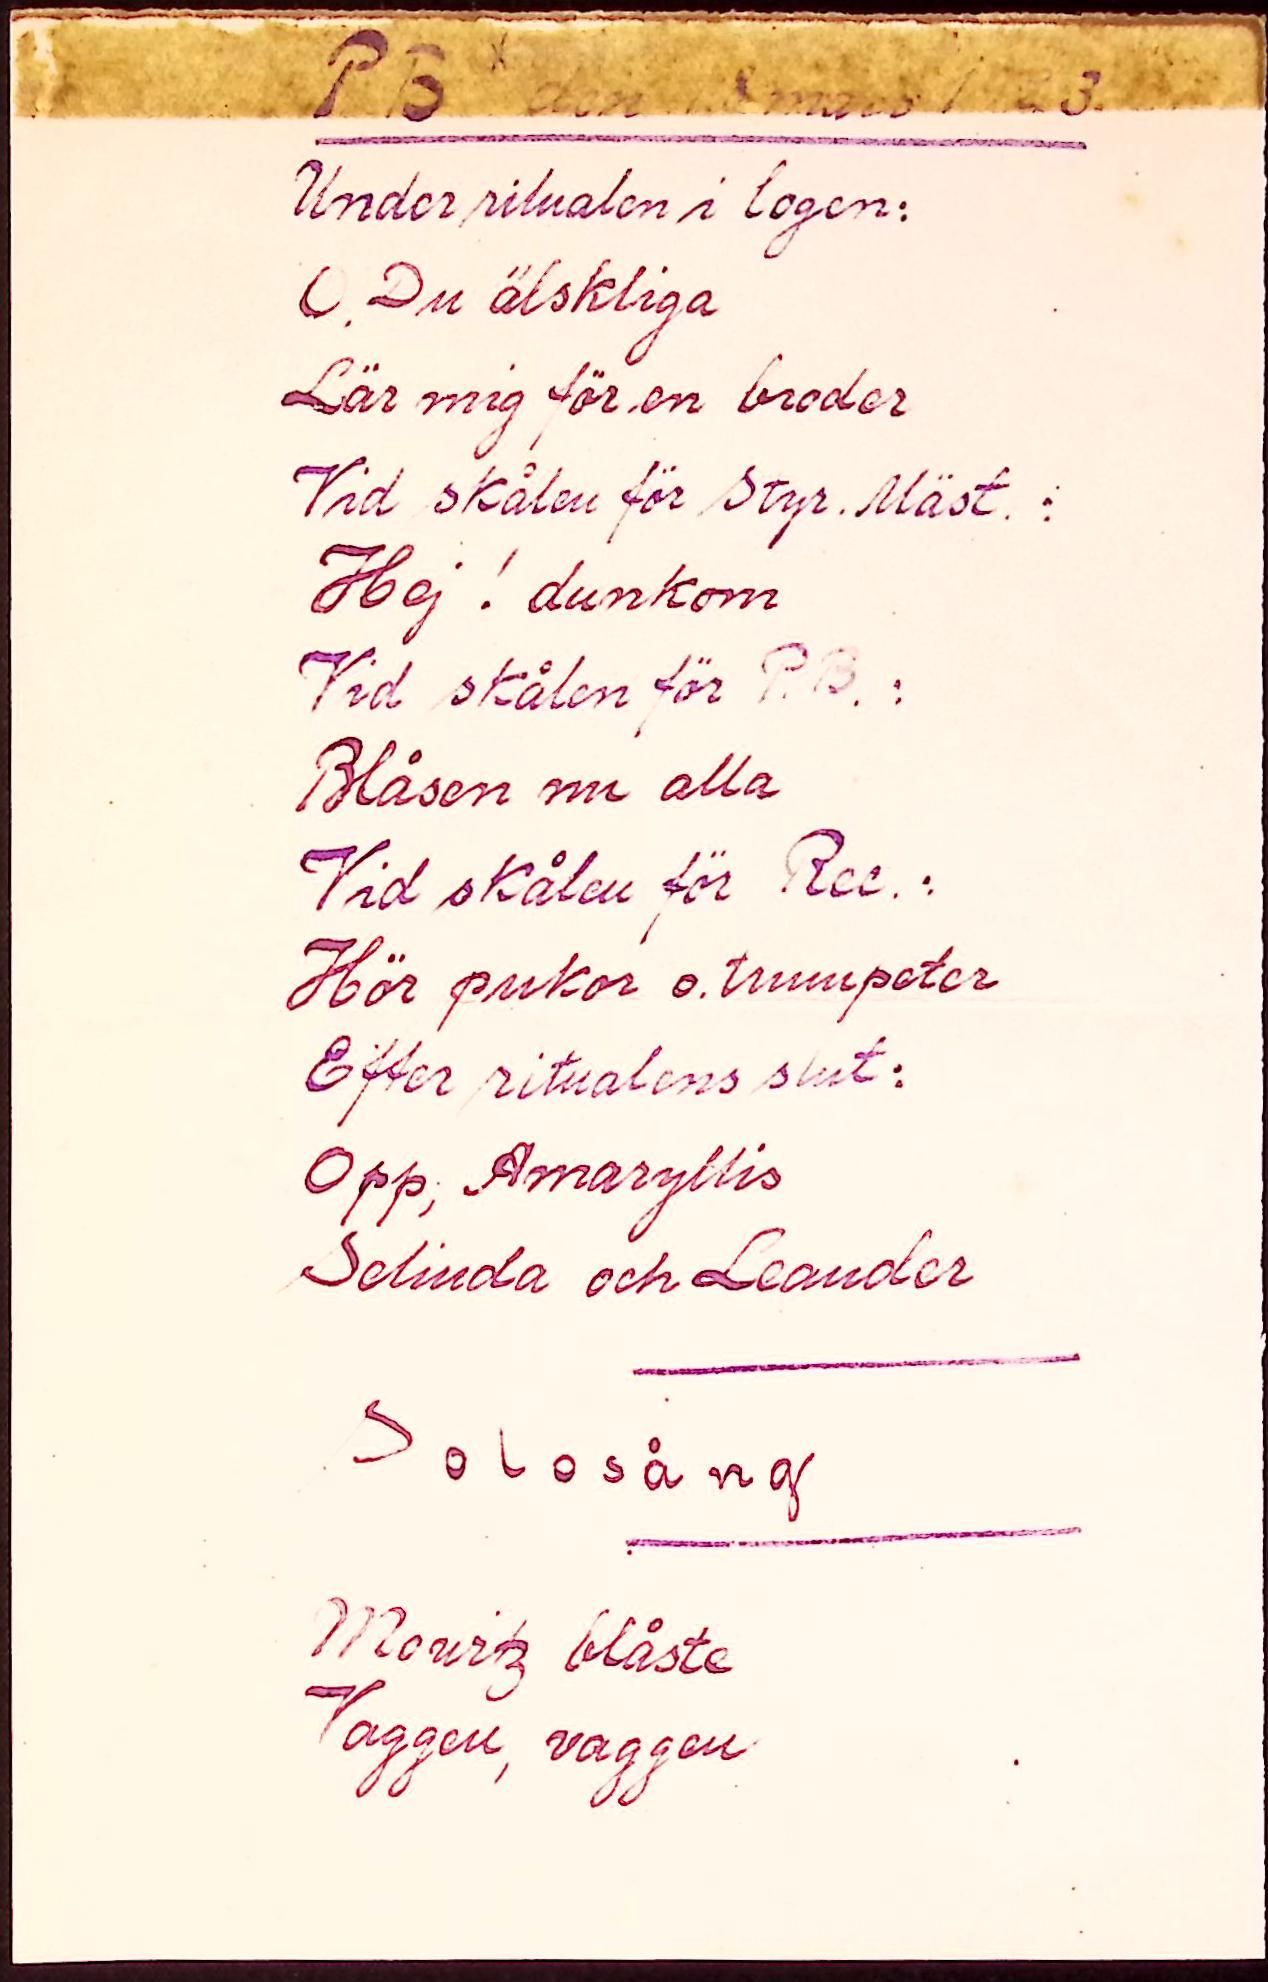 P B den mars
Under ritualen i logen:
O, Du älskliga
Lär mig för en broder
Vid skålen för Styr. Mäst. :
Hej! dunkom
Vid skålen för P.B. :
Blåsen nu alla
Vid skålen för Rec. :
Hör pukor o. trumpeter
Efter ritualens slut:
Opp, Amaryllis
Selinda och Leander
Solosång
Mowitz blåste
Vaggen, vaggen